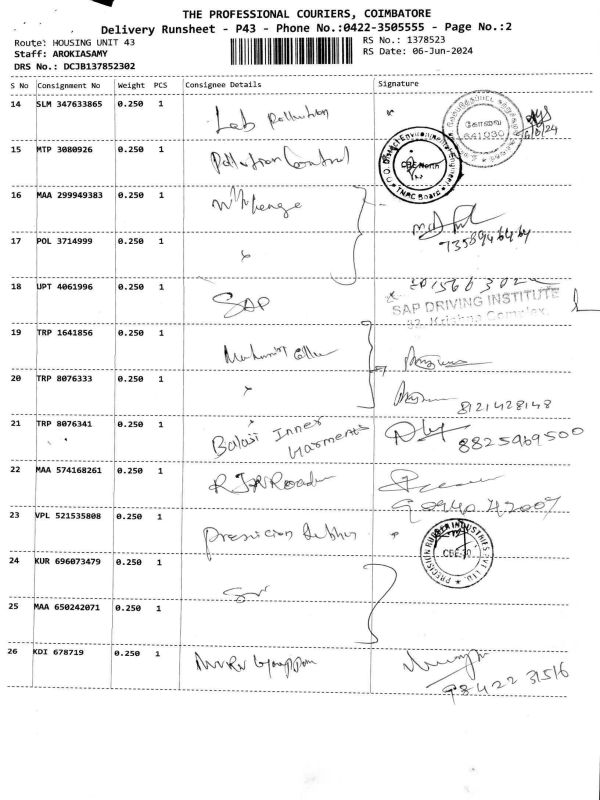 THE PROFESSIONAL COURIERS, COIMBATORE
Delivery Runsheet - P43 - Phone No.:0422-3505555 - Page No.:2
Route: HOUSING UNIT 43
RS No.: 1378523
Staff: AROKIASAMY
RS Date: 06-Jun-2024
DRS No.: DCJB137852302
S No Consignment No Weight PCS Consignee Details Signature
14 SLM 347633865 0.250 1 Lab Pollution
கோவை
641030
15 MTP 3080926 0.250 1 Pollution Control
CBE North
16 MAA 299949383 0.250 1
17 POL 3714999 0.250 1
18 UPT 4061996 0.250 1 SAP
SAP DRIVING INSTITUTE
32, Krishna Complex,
19 TRP 1641856 0.250 1
20 TRP 8076333 0.250 1
8121428148
21 TRP 8076341 0.250 1 Balaji Inner Garments
8825969500
22 MAA 574168261 0.250 1
23 VPL 521535808 0.250 1 Precision Rubber
PRECISION RUBBER INDUSTRIES PVT LTD.
CBE-30
24 KUR 696073479 0.250 1
25 MAA 650242071 0.250 1
26 KDI 678719 0.250 1
98422 31516